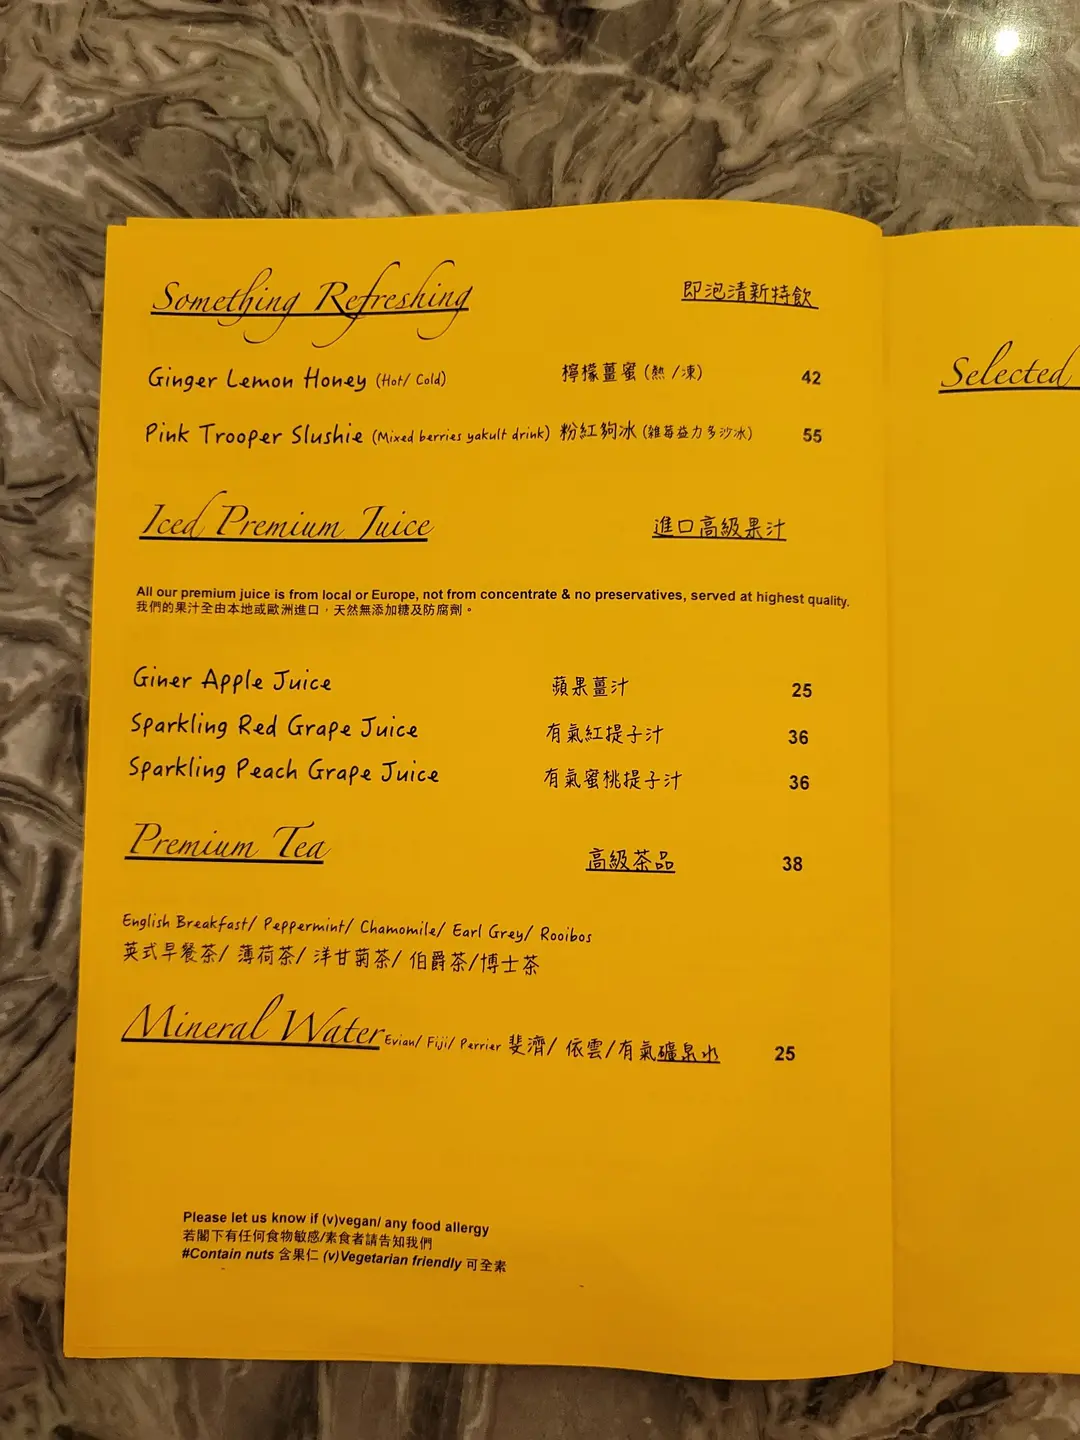 Something Refreshing 即泡清新特飲
Ginger Lemon Honey (Hot/ Cold) 檸檬薑蜜 (熱 /凍) 42
Pink Trooper Slushie (Mixed berries yakult drink) 粉紅夠冰 (雜莓益力多沙冰) 55
Iced Premium Juice 進口高級果汁
All our premium juice is from local or Europe, not from concentrate & no preservatives, served at highest quality.
我們的果汁全由本地或歐洲進口，天然無添加糖及防腐劑。
Giner Apple Juice 蘋果薑汁 25
Sparkling Red Grape Juice 有氣紅提子汁 36
Sparkling Peach Grape Juice 有氣蜜桃提子汁 36
Premium Tea 高級茶品 38
English Breakfast/ Peppermint/ Chamomile/ Earl Grey/ Rooibos
英式早餐茶/ 薄荷茶/ 洋甘菊茶/ 伯爵茶/博士茶
Mineral Water Evian/ Fiji/ Perrier 斐濟/ 依雲/有氣礦泉水 25
Please let us know if (v)vegan/ any food allergy
若閣下有任何食物敏感/素食者請告知我們
#Contain nuts 含果仁 (v)Vegetarian friendly 可全素
Selected